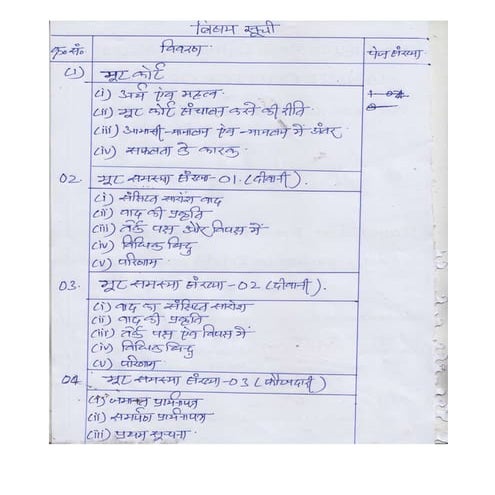 विषय सूची
क्र० सं० विवरण पेज संख्या
(1) मूट कोर्ट
(i) अर्थ एंव महत्व
(ii) मूट कोर्ट संचालन करने की रीति
(iii) आभासी न्यायालय एंव न्यायालय में अंतर
(iv) सफलता के कारक
02. मूट समस्या संख्या-01 (दीवानी).
(i) संक्षिप्त सारांश वाद
(ii) वाद की प्रकृति
(iii) तर्क पक्ष और विपक्ष में
(iv) विधिक बिन्दु
(v) परिणाम
03. मूट समस्या संख्या-02 (दीवानी).
(i) वाद का संक्षिप्त सारांश
(ii) वाद की प्रकृति
(iii) तर्क पक्ष एंव विपक्ष में
(iv) विधिक बिन्दु
(v) परिणाम
04. मूट समस्या संख्या-03 (फौजदारी)
(i) जमानत प्रार्थनापत्र
(ii) समर्पण प्रार्थनापत्र
(iii) प्रथम सूचना